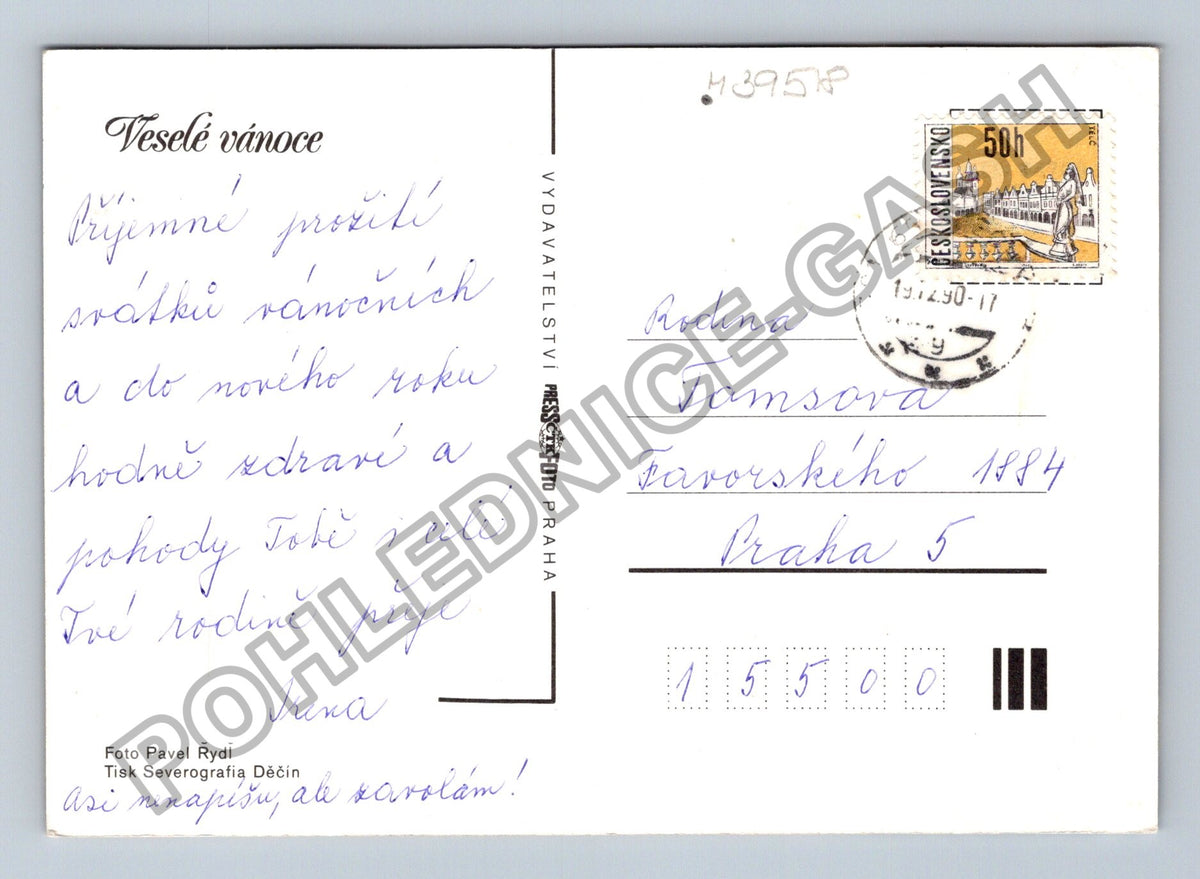 Veselé vánoce
Příjemné prožití
svátků vánočních
a do nového roku
hodně zdraví a
pohody Tobě i celé
Tvé rodině přeje
Irena
Foto Pavel Rydl
Tisk Severografia Děčín
Asi nenapíšu, ale zavolám!
VYDAVATELSTVÍ PRESSFOTO PRAHA
ČTK
ČESKOSLOVENSKO
50h
TELČ
19.12.90-17
Rodina
Tomsova
Favorského 1884
Praha 5
15500
POHLEDNICE-GASH